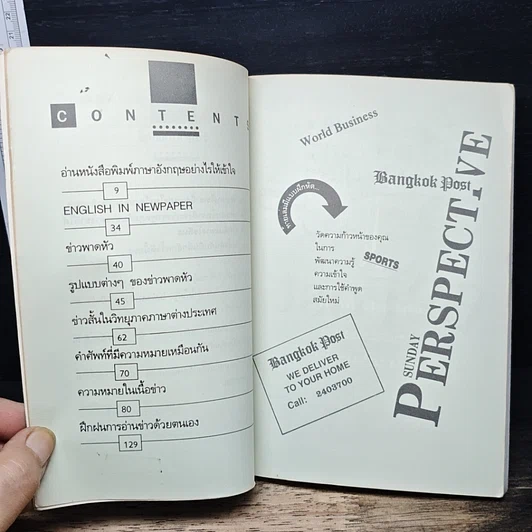 CONTENTS
อ่านหนังสือพิมพ์ภาษาอังกฤษอย่างไรให้เข้าใจ
9
ENGLISH IN NEWPAPER
34
ข่าวพาดหัว
40
รูปแบบต่างๆ ของข่าวพาดหัว
45
ข่าวสั้นในวิทยุภาคภาษาต่างประเทศ
62
คำศัพท์ที่มีความหมายเหมือนกัน
70
ความหมายในเนื้อข่าว
80
ฝึกฝนการอ่านข่าวด้วยตนเอง
129
World Business
Bangkok Post
วัดความก้าวหน้าของคุณ
ในการ
พัฒนาความรู้
ความเข้าใจ
และการใช้คำพูด
สมัยใหม่
SPORTS
SUNDAY
PERSPECTIVE
Bangkok Post
WE DELIVER
TO YOUR HOME
Call: 2403700